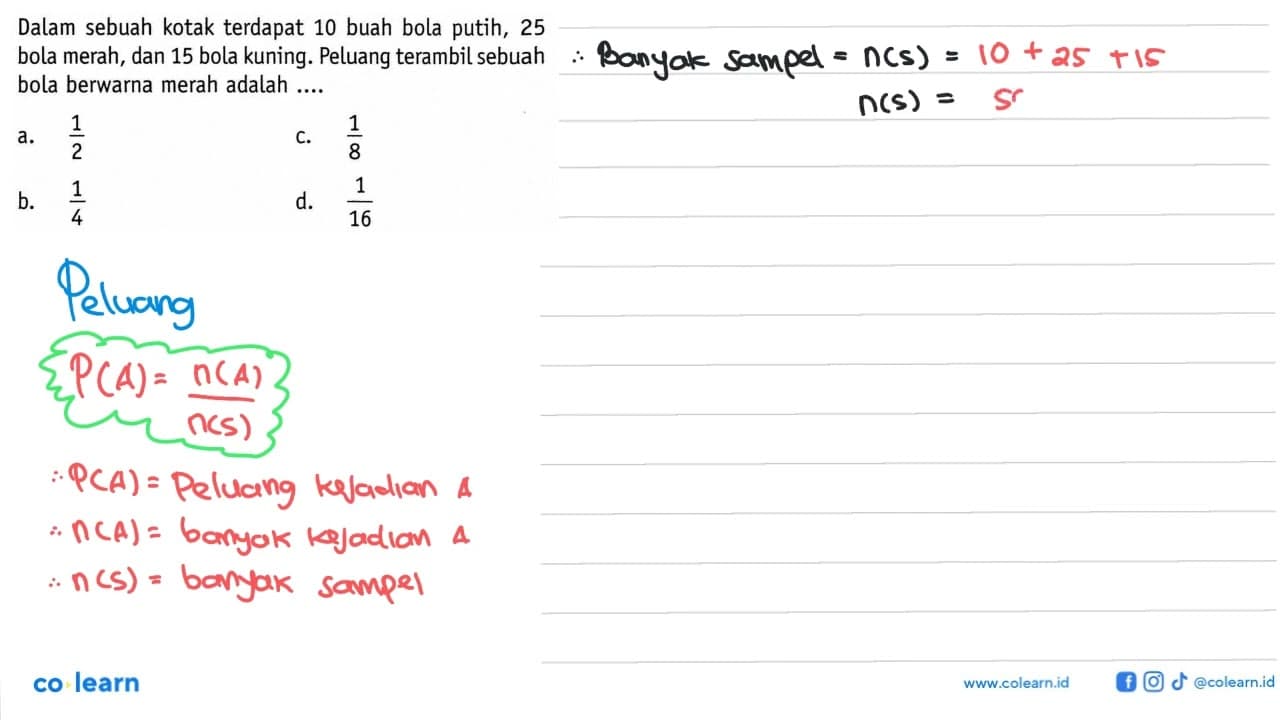 Dalam sebuah kotak terdapat 10 buah bola putih, 25
bola merah, dan 15 bola kuning. Peluang terambil sebuah
bola berwarna merah adalah ....
a. 1/2 c. 1/8
b. 1/4 d. 1/16
∴ Banyak sampel = n(s) = 10 + 25 + 15
n(s) = 5
Peluang
P(A) = n(A)/n(s)
∴ P(A) = Peluang kejadian A
∴ n(A) = banyak kejadian A
∴ n(s) = banyak sampel
co learn
www.colearn.id
@colearn.id